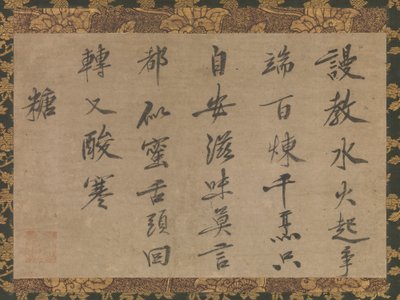 謾教水火起爭
端百煉千烹只
自安滋味莫言
都似蜜舌頭回
轉又酸寒
糖